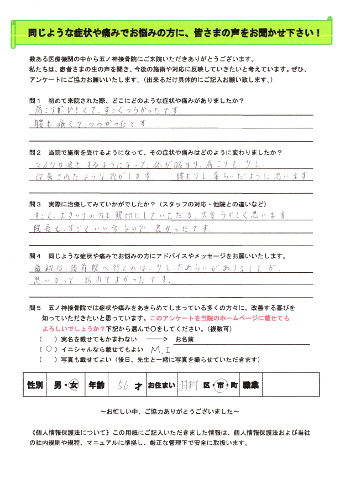 同じような症状や痛みでお悩みの方に、皆さまの声をお聞かせ下さい！
数ある医療機関の中から五ノ神接骨院にご来院いただきありがとうございます。
私たちは、患者さまの生の声を聞き、今後の施術や対応に反映していきたいと考えています。ぜひ、
アンケートにご協力お願いいたします。（出来るだけ具体的にご記入お願い致します、）
問１　初めて来院された際、どこにどのような症状や痛みがありましたか？
肩こりがひどくて、すごくつらかったです
腰も痛くてつらかったです
問２　当院で施術を受けるようになって、その症状や痛みはどのように変わりましたか？
肩こりも、少し
ような気がします　腰も少し楽らいだように思います
問３　実際に治療してみていかがでしたか？（スタッフの対応・他院との違いなど）
すごく、スタッフの方も親切にしていただき、大変うれしく思います
院長も、すごくいい方なので、良かったです
問４　同じような症状や痛みでお悩みの方にアドバイスやメッセージをお願いいたします。
最初は、接骨院へ行くのは、少しためらいがありましたが、
思いきって　よかったです。
問５　五ノ神接骨院では症状や痛みをあきらめてしまっている多くの方々に、改善する喜びを
知っていただきたいと思っています。このアンケートを当院のホームページに載せても
よろしいでしょうか？下記から選んで○をしてください。（複数可）
（　）実名を載せてもかまわない　→　お名前
（○）イニシャルなら載せてもよい　M,I
（　）写真も載せてよい（後日、先生と一緒に写真を撮らせていただきます）
性別　男・女　年齢　56才　お住まい　羽村　区・市・町　職業
～お忙しい中、ご協力ありがとうございました～
《個人情報保護法について》この用紙にご記入いただきました情報は、個人情報保護法および当社
の社内規則や規程、マニュアルに準拠し、厳正な管理下で安全に取扱います。